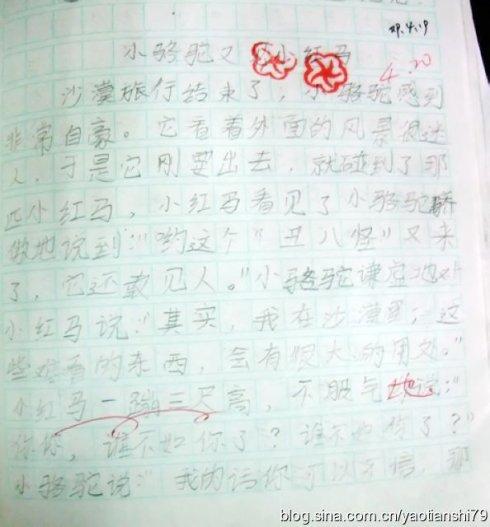 09.4.19
小骆驼又 小红马
4.20
沙漠旅行结束了，小骆驼感到
非常自豪。它看着外面的风景很迷
人，于是它刚要出去，就碰到了那
匹小红马，小红马看见了小骆驼骄
傲地说到："哟这个"丑八怪"又来
了，它还敢见人。"小骆驼谦虚地对
小红马说："其实，我在沙漠里，这
些难看的东西，会有很大的用处。"
小红马一蹦三尺高，不服气地说："
你你，谁不如你了？谁不如你了？"
小骆驼说："我的话你可以不信，那
blog.sina.com.cn/yaotianshi79